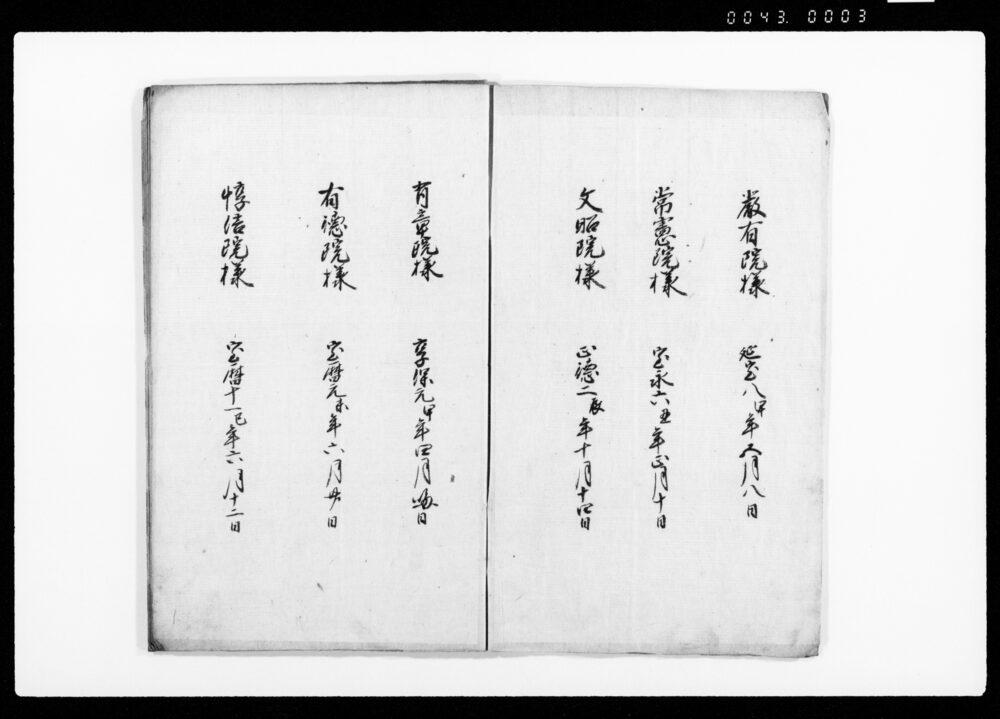 0043. 0003
厳有院様 延宝八申年五月八日
常憲院様 宝永六丑年正月十日
文昭院様 正徳二辰年十月十四日
有章院様 享保元申年四月晦日
有徳院様 宝暦元未年六月廿日
惇信院様 宝暦十一巳年六月十二日